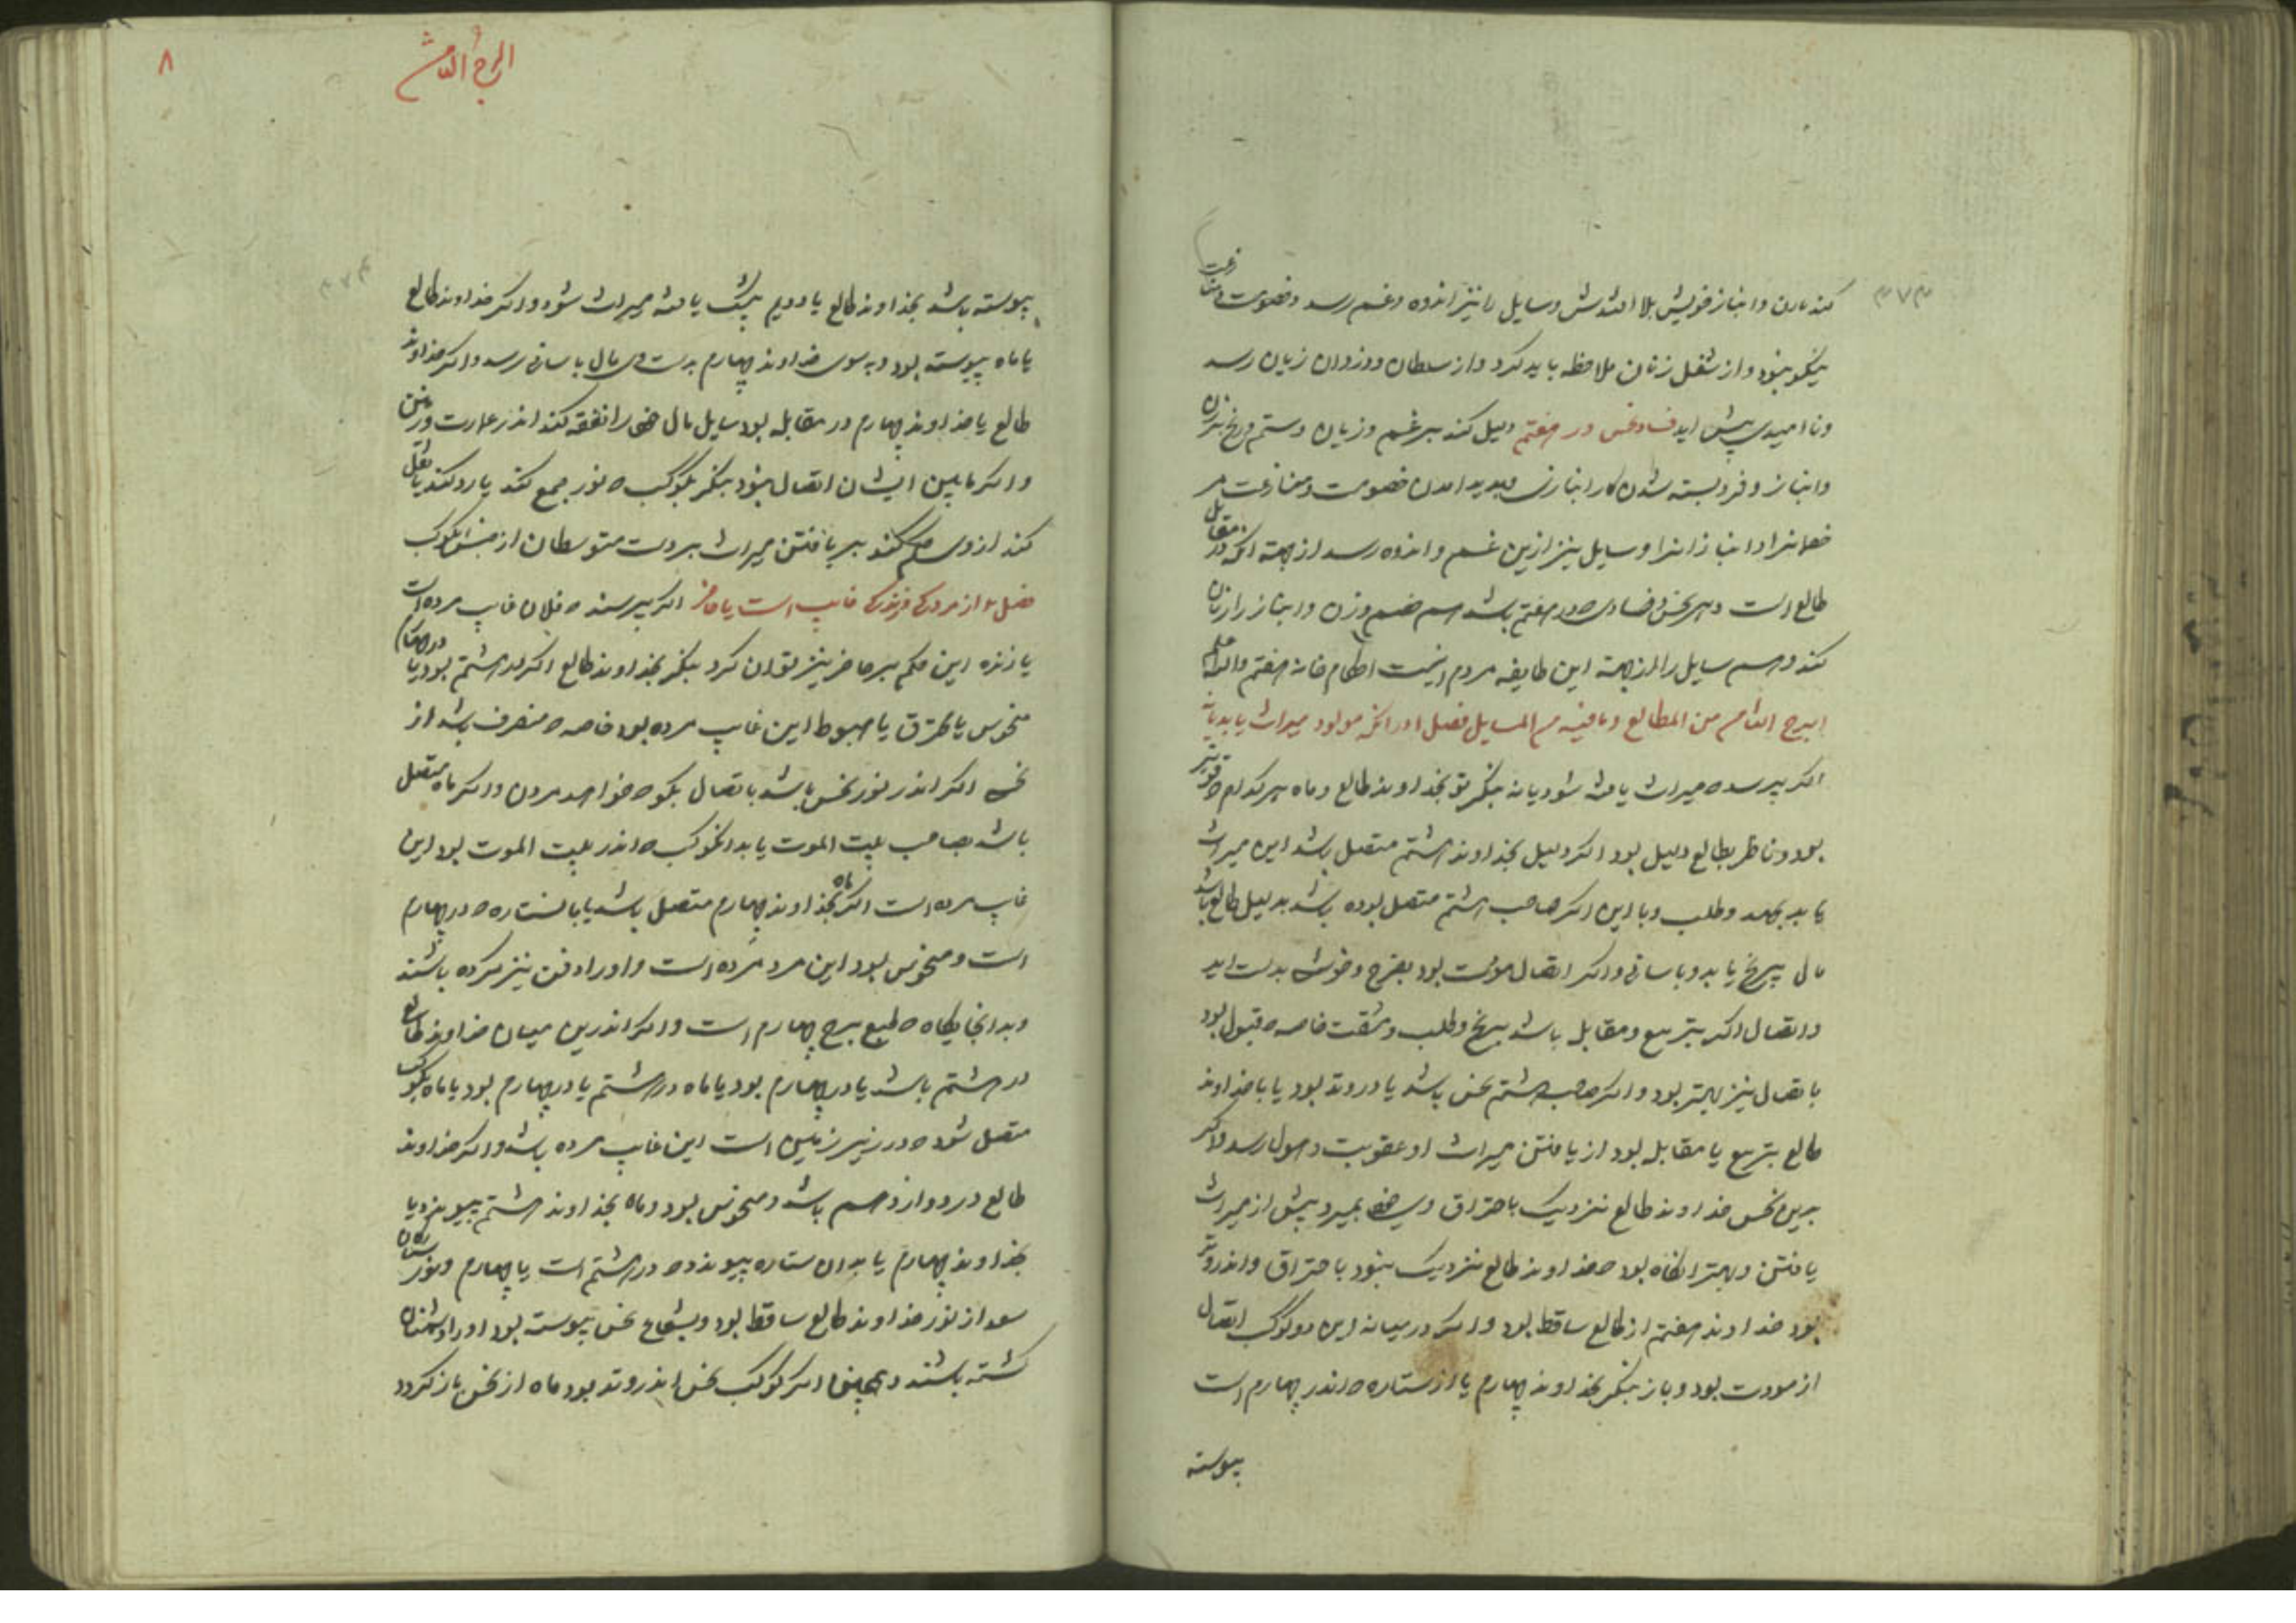 ۳۷۳
کند مارن و انباز خویش بلا اندیش و سایل را نیز اندوه و غم رسد و خصومت و منازعت
نیکو نبود و از شغل زنان ملاحظه باید کرد و از سلطان و دزدان زیان رسد
و ناامیدی پیش اید فساد نحس در هفتم دلیل کند بر غم و زیان و ستم و رنج بر زن
و انباز و فرو بسته شدن کار انبازی و پدید امدن خصومت و منازعت مر
خصمانرا و انبازانرا و سایل نیز ازین غم و اندوه رسد از جهت انکه در مقابل
طالع است و هر نحس و فسادی که در هفتم باشد هم خصم و زن و انباز را زیان
کند و هم سایل را از جهت این طایفه مردم اینست احکام خانه هفتم والله اعلم
البرج الثامن من المطالع و مافیه من المسایل فصل ا در انکه مولود میراث یابد یا نه
اکر پرسد که میراث یافته شود یا نه بنکر تو بخداوند طالع و ماه هر کدام که قویتر
بود و ناظر بطالع دلیل بود اکر دلیل بخداوند هشتم متصل باشد این میراث
یابد بجهد و طلب و با این اکر صاحب هشتم متصل بوده باشد بدلیل طالع باشد
مال بیرنج یابد و باسانی و اکر اتصال مودت بود بفرح و خوشی بدست اید
و اتصال اکر بتربیع و مقابل باشد برنج و طلب و مشقت خاصه که قبول بود
باتصال نیز بهتر بود و اکر صاحب هشتم نحس باشد یا در وتد بود یا با خداوند
طالع بتربیع یا مقابله بود از یافتن میراث او عقوبت و هول رسد و اکر
برین نحس خداوند طالع نزدیک باحتراق وی خود بمیرد پیش از میراث
یافتن و بهتر انکاه بود که خداوند طالع نزدیک نبود باحتراق و اندر وتد
بود خداوند هفتم از طالع ساقط بود و اکر در میانه این دو کوکب اتصال
از مودت بود و باز بنکر بخداوند چهارم یا از ستاره که اندر چهارم است
پیوسته
۸
البرج الثامن
۳۷۴
پیوسته باشد بخداوند طالع یا دویم بیشک یافته میراث شود و اکر خداوند طالع
یا ماه پیوسته بود و به سوی خداوند چهارم بدست وی مال باسانی رسد و اکر خداوند
طالع یا خداوند چهارم در مقابله بود سایل مال خود را نفقه کند اندر عمارت و زمین
و اکر مابین ایشان اتصال نبود بنکر بکوکب که نور جمع کند یا رد کند یا نقل
کند از وی حکم کند بر یافتن میراث بر دست متوسطان از جنس کوکب
فصل ب از مردن و زندکی غایب است یا حاضر اکر پرسند که فلان غایب مرده است
یا زنده این حکم بر حاضر نیز توان کرد بنکر بخداوند طالع اکر در هشتم بود یا در چهارم
منحوس یا محترق یا هبوط این غایب مرده بود خاصه که منصرف باشد از
نحس اکر اندر نور نحس باشد باتصال بکو که خواهد مردن و اکر ماه متصل
باشد بصاحب بیت الموت یا بدانکوکب که اندر بیت الموت بود این
غایب مرده است اکر ماه بخداوند چهارم متصل باشد یا با ستاره که در چهارم
است و منحوس بود این مرد مرده است و او را دفن نیز کرده باشند
و بدانجایکاه که طبع برج چهارم است و اکر اندرین میان خداوند طالع
در هشتم باشد یا در چهارم بود یا ماه در هشتم یا در چهارم بود یا ماه بکوکب
متصل شود که در زیر زمین است این غایب مرده باشد و اکر خداوند
طالع در دوازدهم باشد و منحوس بود و ماه بخداوند هشتم پیوندد یا
بخداوند چهارم یا بدان ستاره پیوندد که در هشتم است یا چهارم و نور ستارکان
سعد از نور خداوند طالع ساقط بود و بشعاع نحس پیوسته بود او را دشمنان
کشته باشند و همچنین اکر کوکب نحس اندر وتد بود ماه از نحس باز کردد